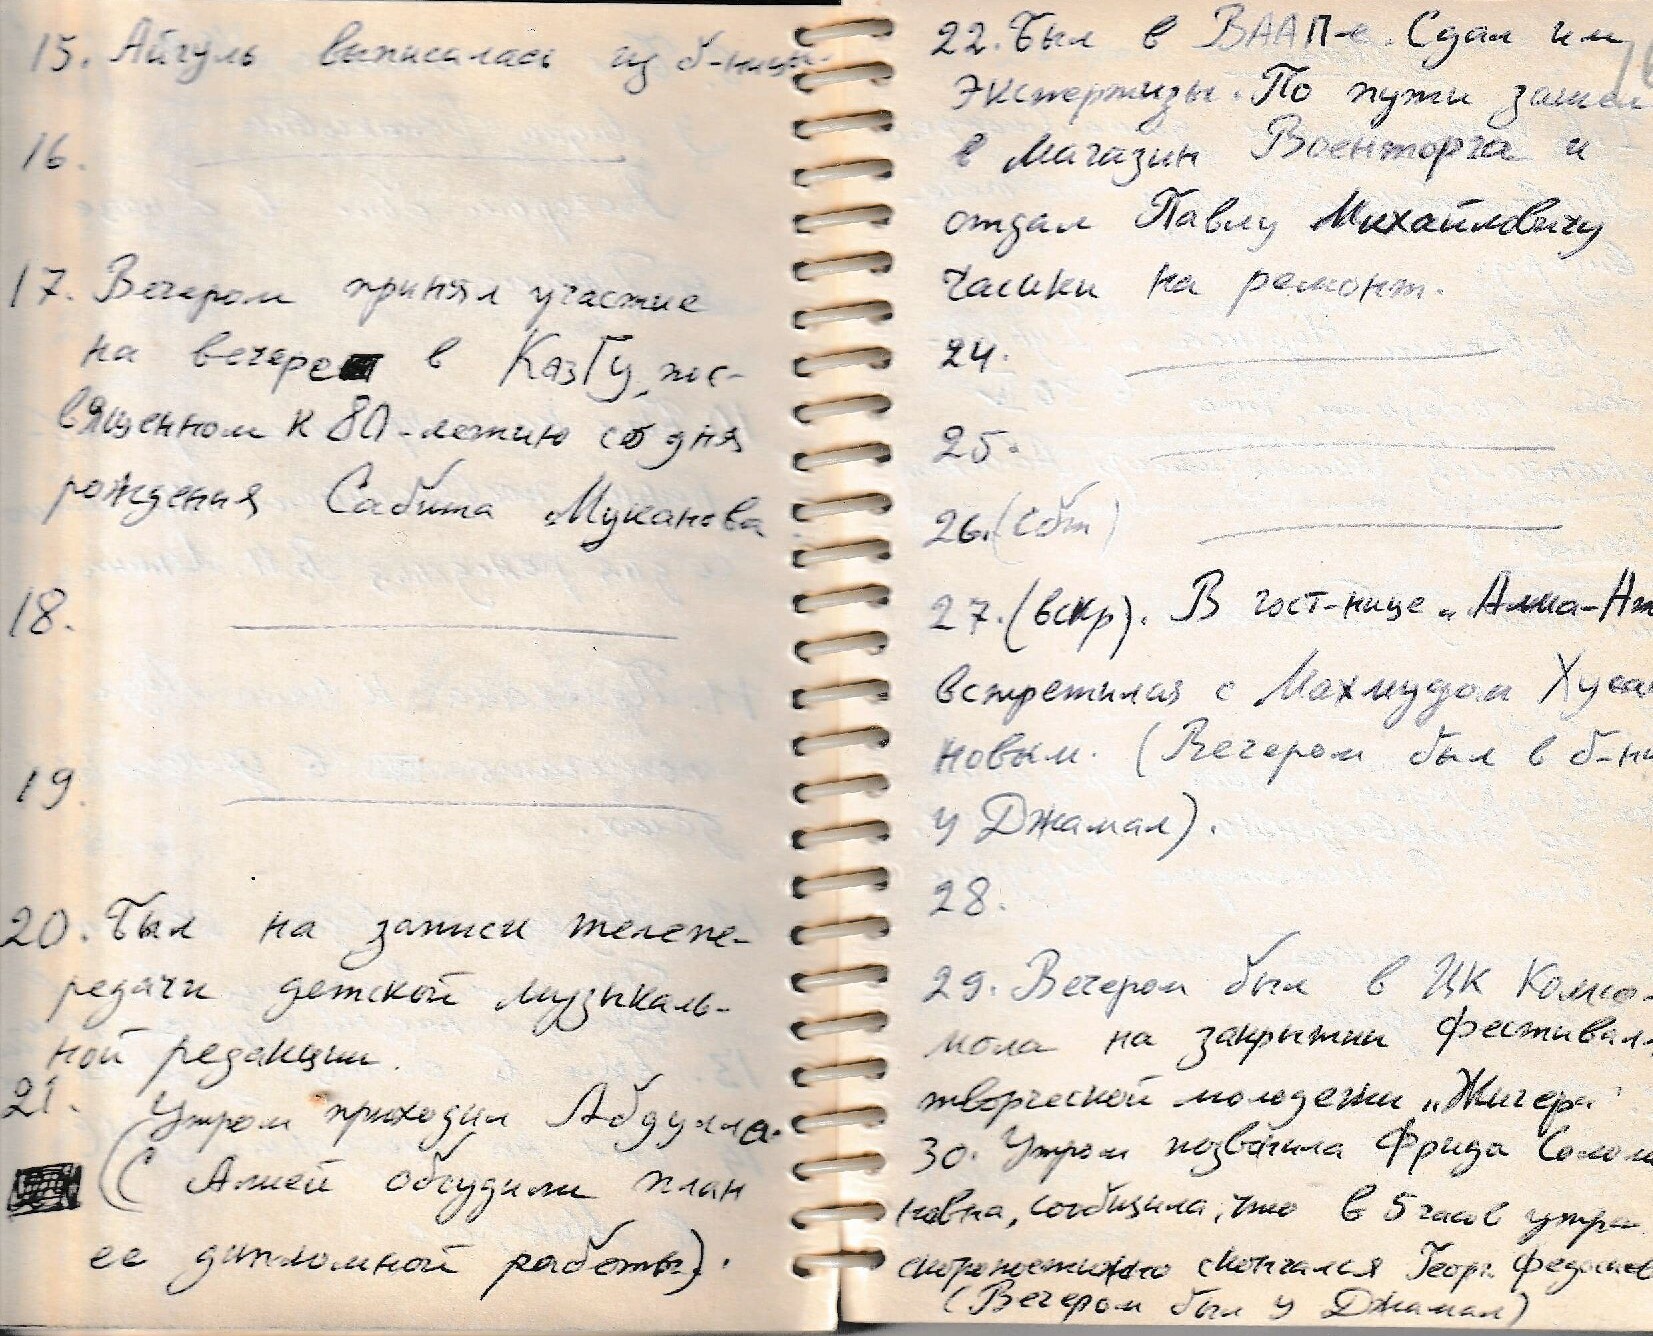 15. Айгуль выписалась из б-ницы.
16.
17. Вечером принял участие
на вечере в КазГу, пос-
вященном к 80-летию со дня
рождения Сабита Муканова
18.
19.
20. Был на записи телепе-
редачи детской музыкаль-
ной редакции.
21. Утром приходил Абдулла.
(С Алией обсудили план
ее дипломной работы).
22. Был в ВААП-е. Сдал им
экспертизы. По пути зашел
в магазин Военторга и
отдал Павлу Михайловичу
часики на ремонт.
24.
25.
26. (сбт)
27. (вскр). В гост-нице „Алма-Ат
встретился с Махмудом Хуса
новым. (Вечером был в б-ни
у Джамал).
28.
29. Вечером был в ЦК Комсо-
мола на закрытии фестивал
творческой молодежи „Жигер"
30. Утром позвонила Фрида Солом
новна, сообщила, что в 5 часов утра
скоропостижно скончался Георг. Федо
(Вечером был у Джамал)